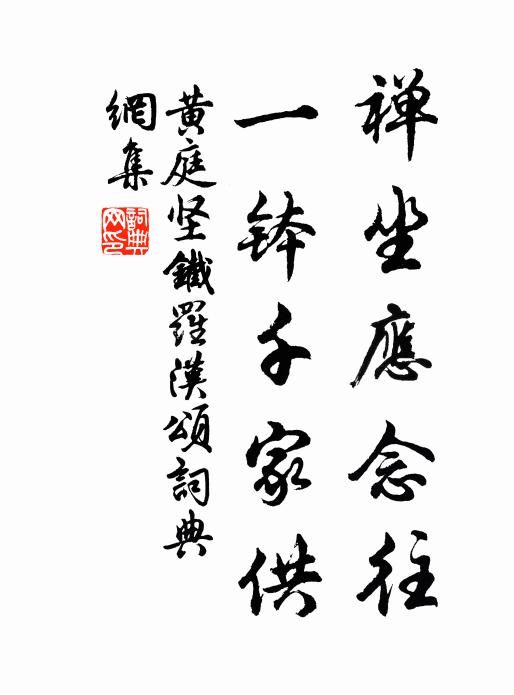 禅坐應念往
一钵千家供
黄庭坚鐵羅漢頌詞典
網集
詞典
网印